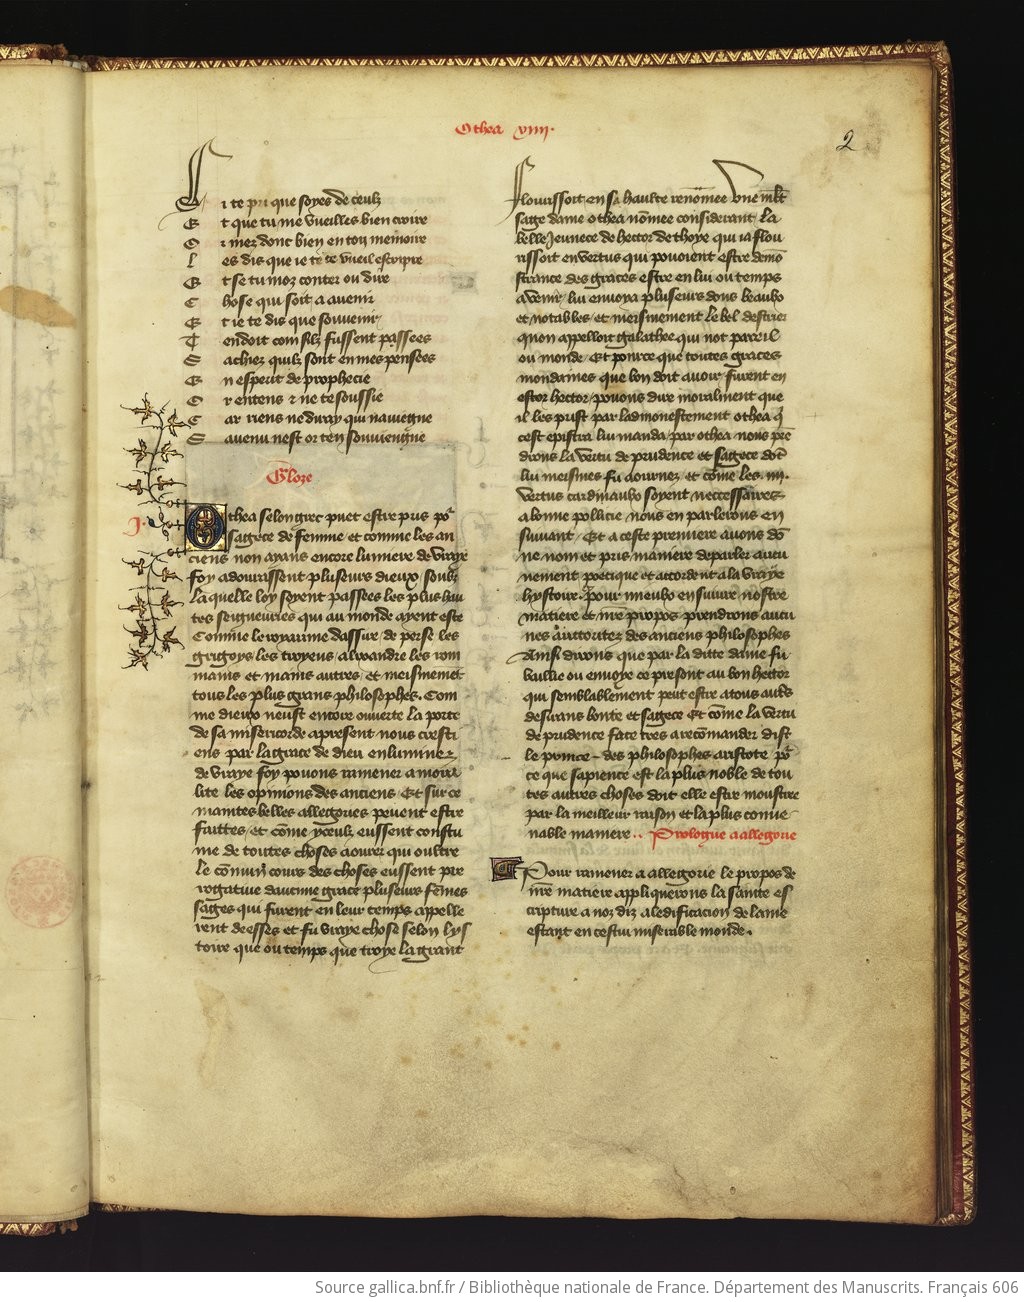 Othea viiii.
2
Si te pri que soyes de ceulz
Et que tu me vueilles bien croire
Or mez donc bien en ton memoire
Les dis que ie te vueil escripre
Et se tu moz conter ou dire
Chose qui soit a avenir
Et ie te dis que souvenir
Ten doit com silz fussent passees
Sachiez quilz sont en mes pensees
En esperit de prophecie
Or entens et ne te soussie
Car riens ne diray qui naviegne
Savenu nest or ten souviengne
Gloze
J.
Othea selon grec puet estre pris por
sagece de femme et comme les an
ciens non ayans encore lumiere de vraye
foy adourassent plusieurs dieux soubz
la quelle loy soyent passees les plus hau
tes seigneuries qui au monde ayent este
Comme le royaume dassire de perse les
grigoys les troyens alixandre les rom
mains et mains autres et meismemet
tous les plus grans philosophes. Com
me dieux neust encore ouverte la porte
de sa misericorde apresent nous cresti
ens par la grace de dieu enluminez
de vraye foy pouons ramener a mora
lite les opinions des anciens Et sur ce
maintes belles allegories pevent estre
faittes et come yceulz eussent constu
me de toutes choses aourer qui oultre
le comun cours des choses eussent pre
rogative daucune grace plusieurs femes
sages qui furent en leur temps appelle
rent deesses et fu vraye chose selon lys
toire que ou temps que troye la grant
flourissoit en sa haulte renomee une mlt
sage dame othea nomee considerant la
belle jeunece de hector de thoye qui ia flou
rissoit en vertus qui pouoient estre demo
strance des graces estre en lui ou temps
avenir lui envoya plusieurs dons beaulx
et notables et meismement le bel destrier
quon appelloit galathee qui not pareil
ou monde Et pource que toutes graces
mondaines que bon doit avoir furent en
estor hector pouons dire moralment que
il les prist par ladmonestement othea q
cest epistra lui manda par othea nous pre
drons la vertu de prudence et sagece dot
lui meismes fu aournez et come les iiii.
vertus cardinaulx soyent neccessaires
a bonne pollicie nous en parlerons en
suivant Et a ceste premiere avons do
ne nom et pris maniere de parler aucu
nement poetique et accordent a la vraye
hystoire. pour mieulx ensuivre nostre
matiere et nre propos prendrons aucu
nes auctoritez des anciens philosophes
Ainsi dirons que par la ditte dame fu
baillie ou envoye ce present au bon hector
qui semblablement peut estre a tous autres
desirans bonte et sagece Et come la vertu
de prudence face tres a recomander dist
le prince des philosophes aristote por
ce que sapience est la plus noble de tou
tes autres choses doit elle estre moustree
par la meilleur raison et la plus conve
nable maniere.. Prologue a allegorie
Pour ramener a allegorie le propos de
nre matiere appliquerons la sainte es
cripture a noz diz a ledificacion de lame
estant en cestui miserable monde.
Source gallica.bnf.fr / Bibliothèque nationale de France. Département des Manuscrits. Français 606